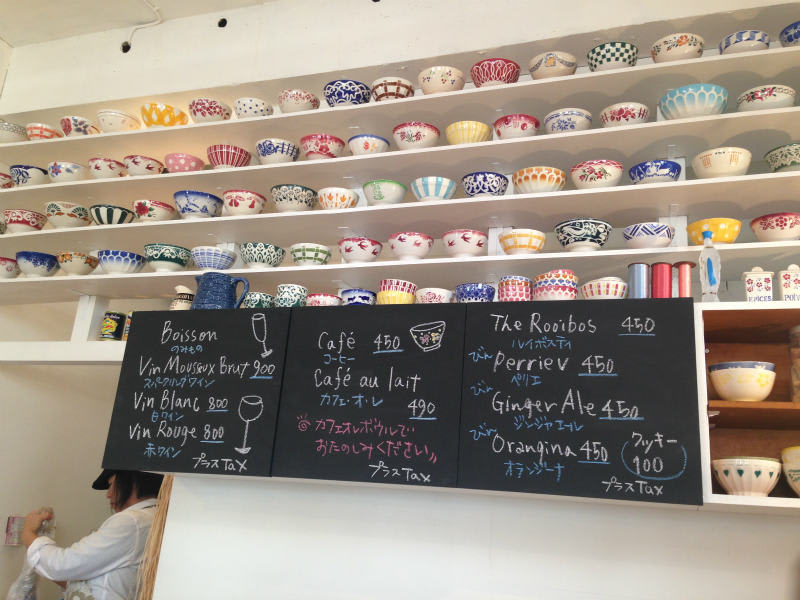 Boisson
のみもの
Vin Mousseux Brut 900
スパークリングワイン
Vin Blanc 800
白ワイン
Vin Rouge 800
赤ワイン
プラスTax
Café 450
コーヒー
Café au lait
カフェ・オ・レ 490
カフェオレボウルで
おたのしみください
プラスTax
The Rooibos 450
ルイボスティ
びん Perrier 450
ペリエ
びん Ginger Ale 450
ジンジャエール
びん Orangina 450
オランジーナ
クッキー
100
プラスTax
EPICES